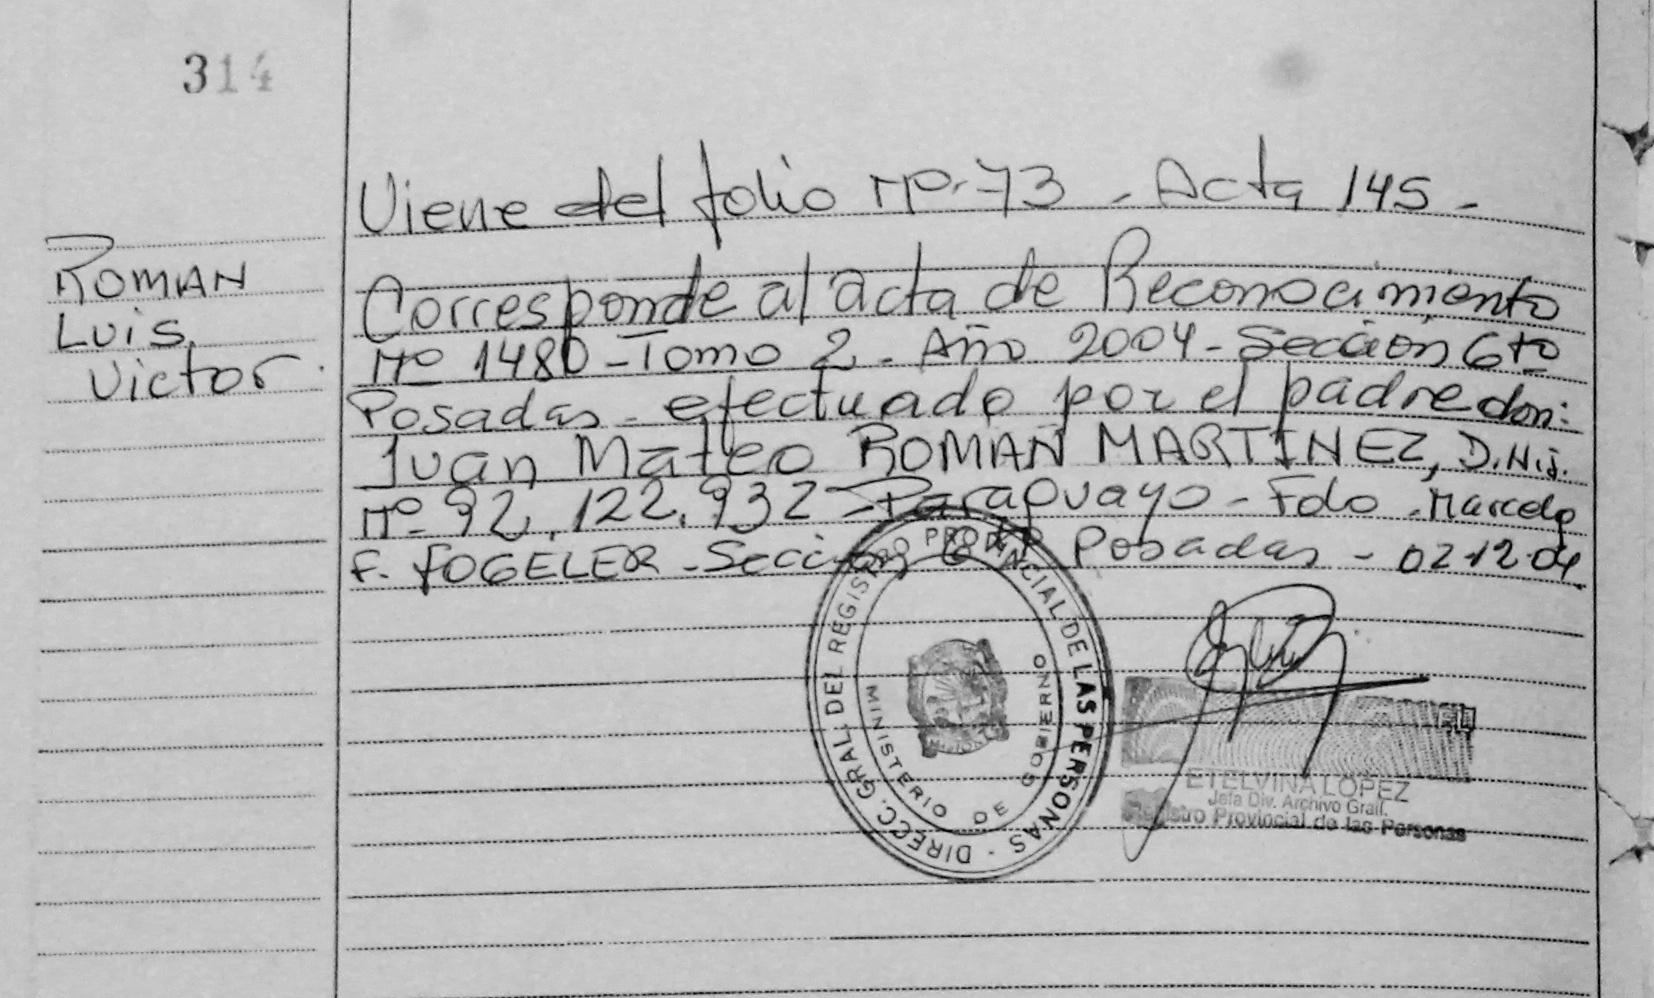 314
Viene del folio Nº 73 - Acta 145 -
ROMAN
LUIS,
Victor
Corresponde al acta de Reconocimiento
Nº 1480 - Tomo 2 - Año 2004 - Sección 6ta
Posadas - efectuado por el padre don:
Juan Mateo ROMAN MARTINEZ, D.N.i.
Nº 92.122.932 - Paraguayo - Fdo. Marcelo
F. FOGELER - Sección 6ta Posadas - 02-12-04
DIRECC. GRAL. DEL REGISTRO PROVINCIAL DE LAS PERSONAS -
MINISTERIO DE GOBIERNO
MISIONES
ETELVINA LOPEZ
Jefa Div. Archivo Gral.
Registro Provincial de las Personas